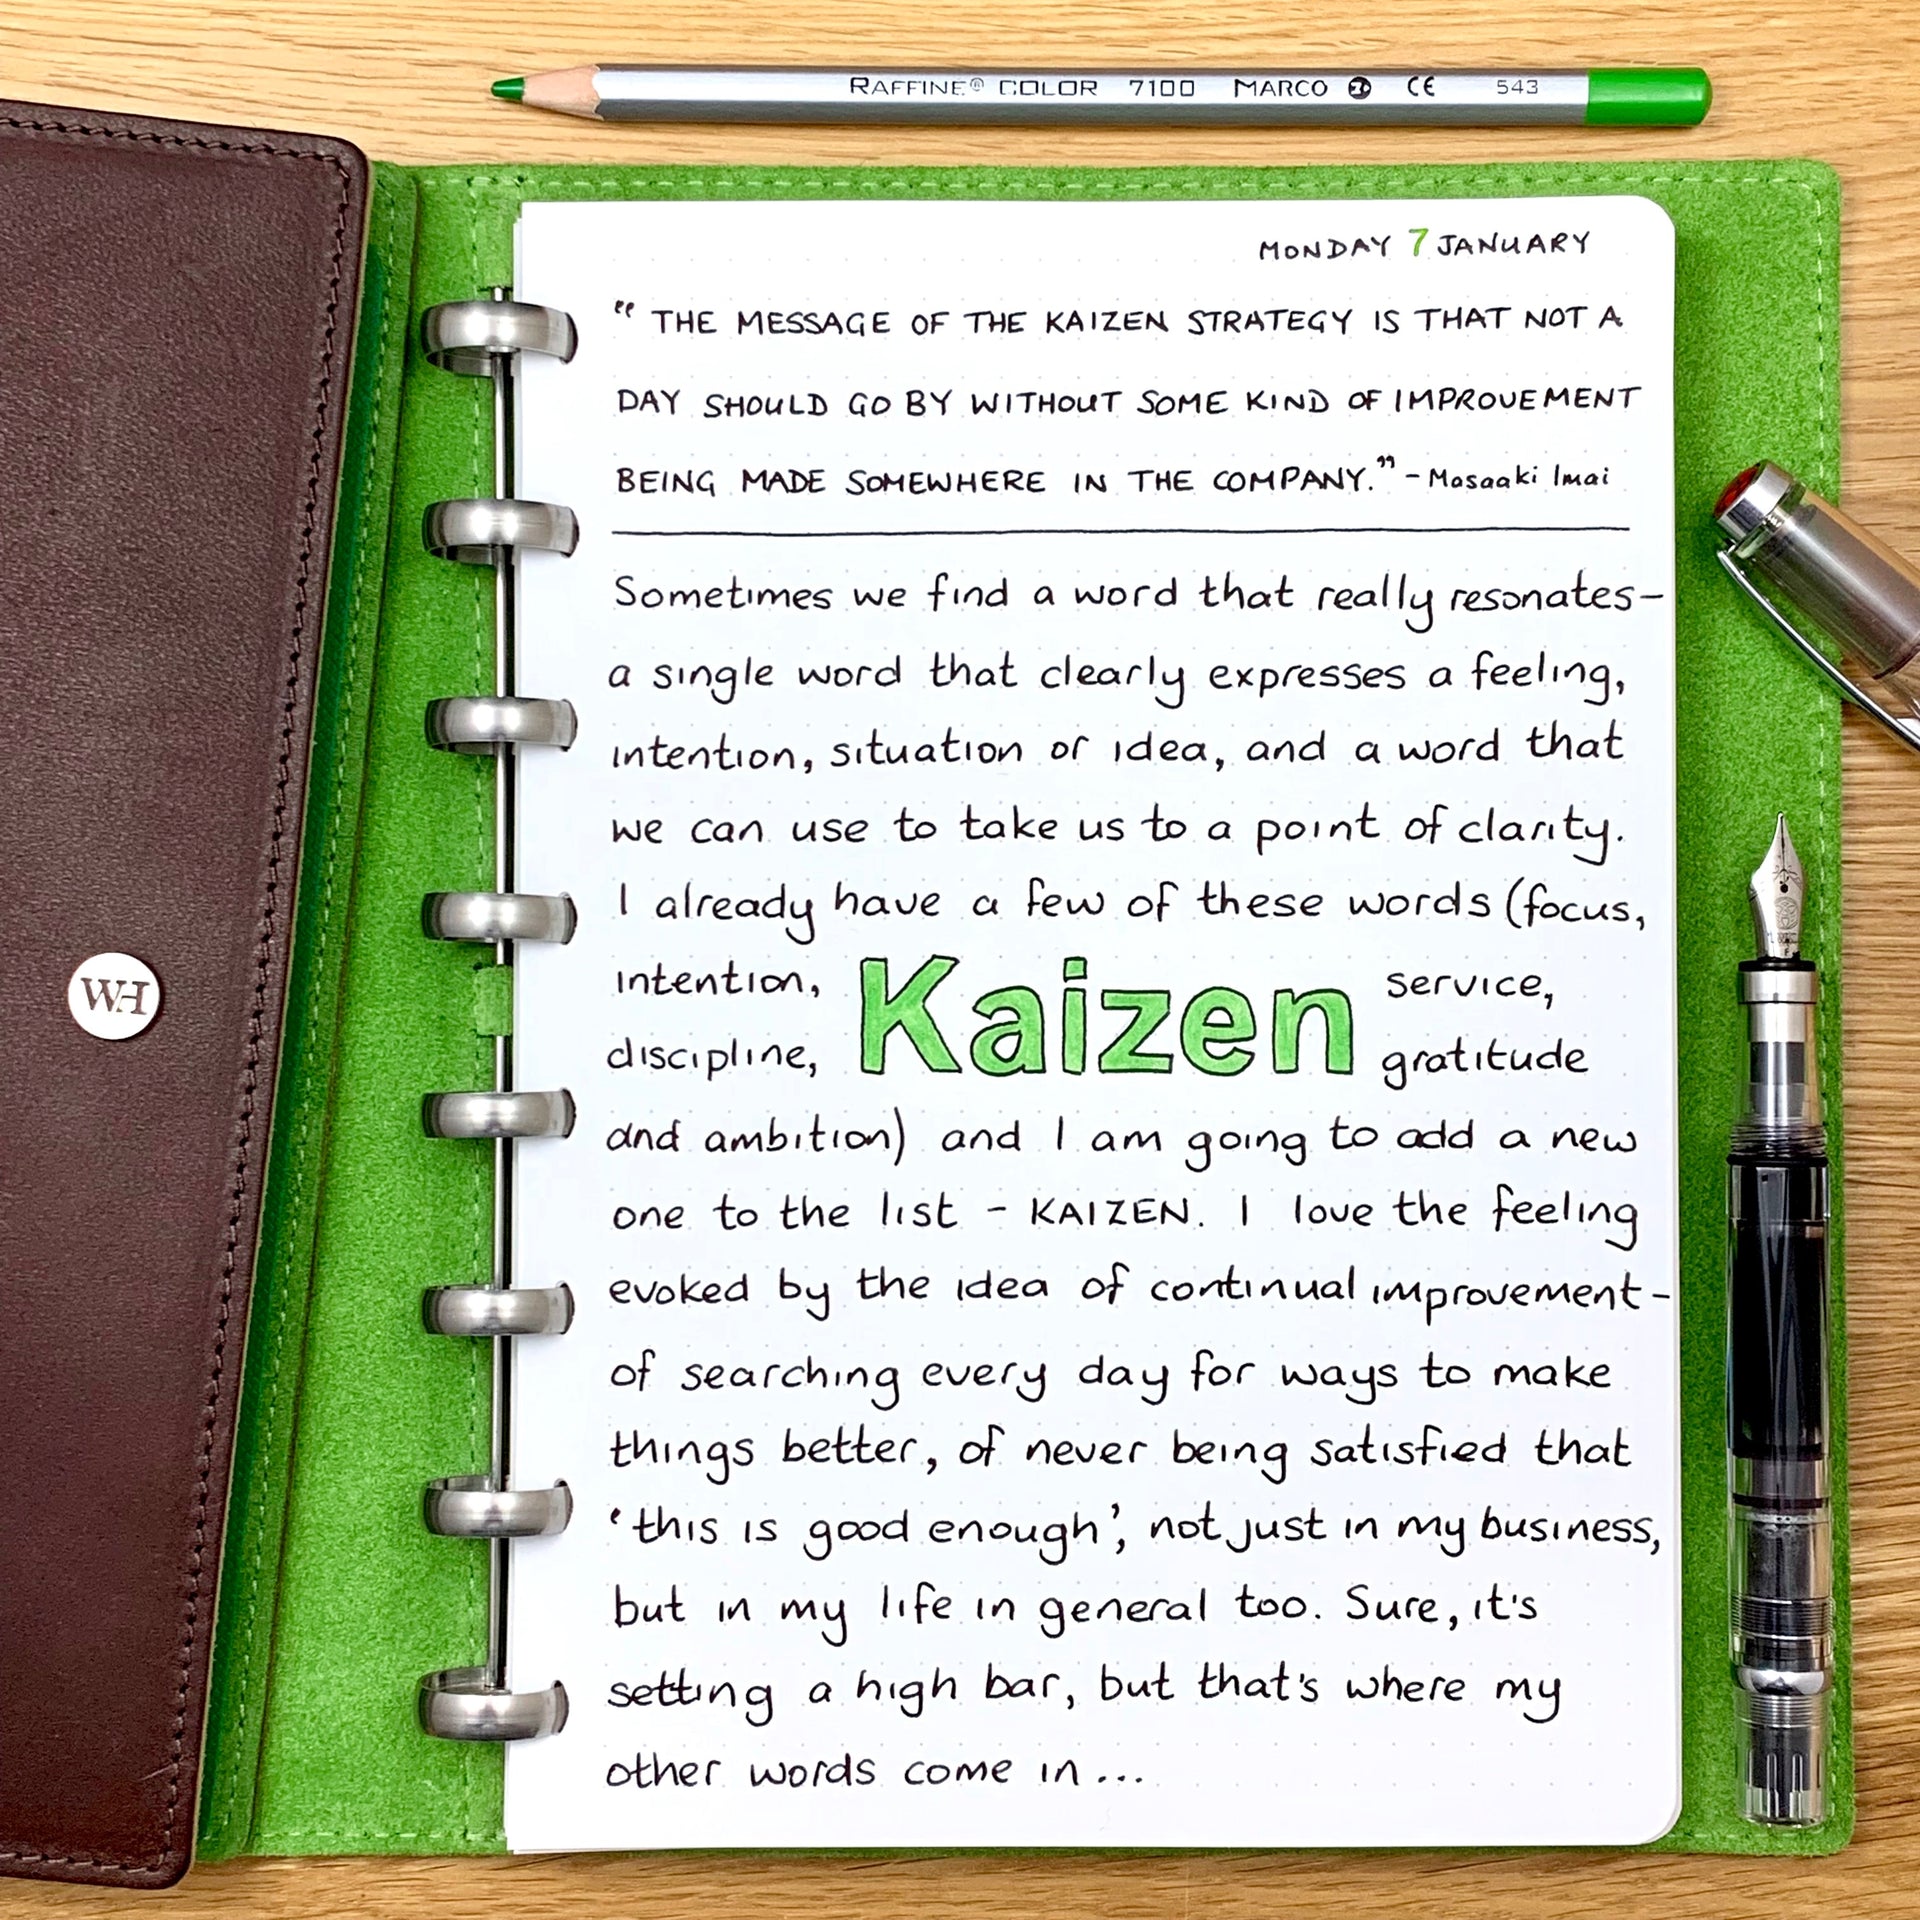 RAFFINE® COLOR 7100 MARCO CE 543
MONDAY 7 JANUARY
“ THE MESSAGE OF THE KAIZEN STRATEGY IS THAT NOT A
DAY SHOULD GO BY WITHOUT SOME KIND OF IMPROVEMENT
BEING MADE SOMEWHERE IN THE COMPANY.” - Masaaki Imai
Sometimes we find a word that really resonates-
a single word that clearly expresses a feeling,
intention, situation or idea, and a word that
we can use to take us to a point of clarity.
I already have a few of these words (focus,
intention, Kaizen service,
discipline, gratitude
and ambition) and I am going to add a new
one to the list - KAIZEN. I love the feeling
evoked by the idea of continual improvement-
of searching every day for ways to make
things better, of never being satisfied that
‘this is good enough’, not just in my business,
but in my life in general too. Sure, it's
setting a high bar, but that's where my
other words come in...
WH